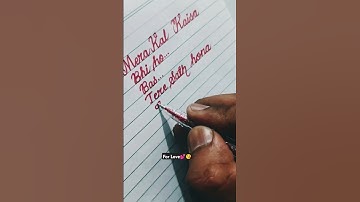 Mera Kal Kaisa
Bhi ho...
Bas...
Tere Sath hona
For Love💕😘